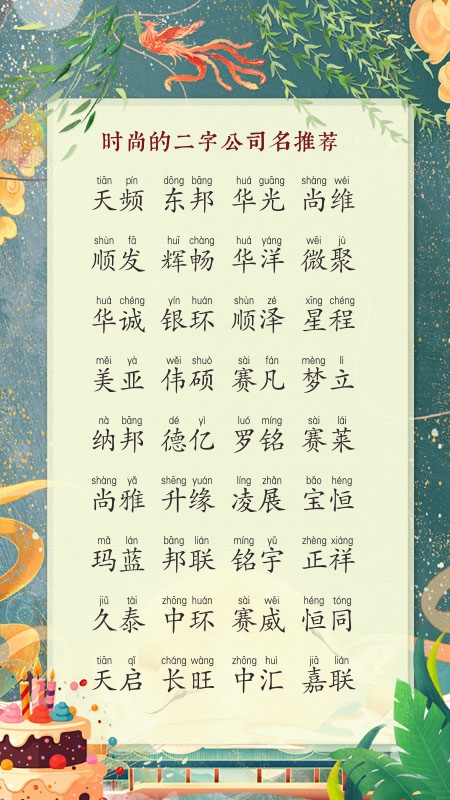 时尚的二字公司名推荐
tiān pín dōng bāng huá guāng shàng wéi
天频 东邦 华光 尚维
shùn fā huī chàng huá yáng wēi jù
顺发 辉畅 华洋 微聚
huá chéng yín huán shùn zé xīng chéng
华诚 银环 顺泽 星程
měi yà wěi shuò sài fán mèng lì
美亚 伟硕 赛凡 梦立
nà bāng dé yì luó míng sài lái
纳邦 德亿 罗铭 赛莱
shàng yǎ shēng yuán líng zhǎn bǎo héng
尚雅 升缘 凌展 宝恒
mǎ lán bāng lián míng yǔ zhèng xiáng
玛蓝 邦联 铭宇 正祥
jiǔ tài zhōng huán sài wēi héng tóng
久泰 中环 赛威 恒同
tiān qǐ cháng wàng zhōng huì jiā lián
天启 长旺 中汇 嘉联